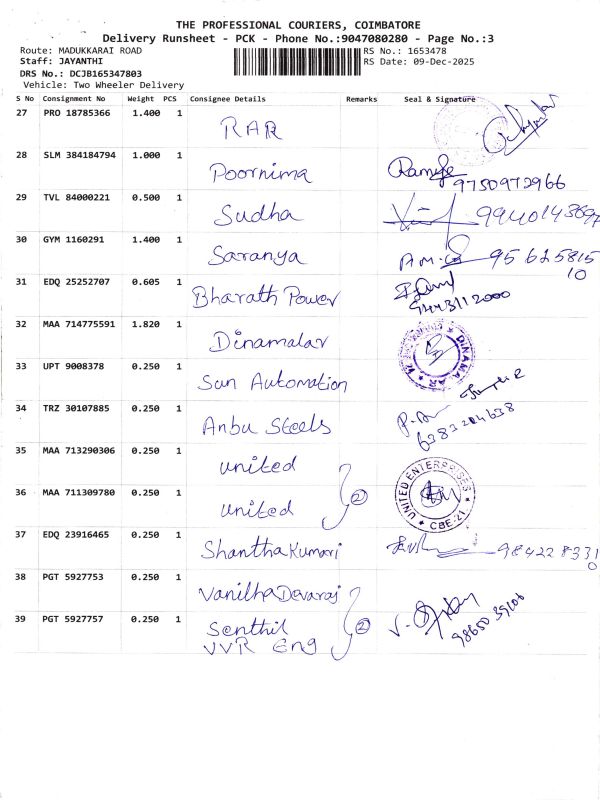 THE PROFESSIONAL COURIERS, COIMBATORE
Delivery Runsheet - PCK - Phone No.:9047080280 - Page No.:3
Route: MADUKKARAI ROAD RS No.: 1653478
Staff: JAYANTHI RS Date: 09-Dec-2025
DRS No.: DCJB165347803
Vehicle: Two Wheeler Delivery
S No Consignment No Weight PCS Consignee Details Remarks Seal & Signature
27 PRO 18785366 1.400 1 RAR
28 SLM 384184794 1.000 1 Poornima 9750972966
29 TVL 84000221 0.500 1 Sudha
30 GYM 1160291 1.400 1 Saranya 95 625815
10
31 EDQ 25252707 0.605 1 Bharath Power
9443112000
32 MAA 714775591 1.820 1 Dinamalar DINAMALAR
33 UPT 9008378 0.250 1 Sun Automation
34 TRZ 30107885 0.250 1 Anbu Steels
6383204638
35 MAA 713290306 0.250 1 united
36 MAA 711309780 0.250 1 united 2 UNITED ENTERPRISES CBE-21
37 EDQ 23916465 0.250 1 Shantha Kumari 984228 3310
38 PGT 5927753 0.250 1 Vanitha Devaraj
39 PGT 5927757 0.250 1 Senthil 2
VVR Eng